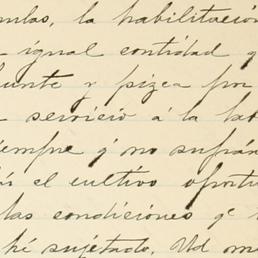 mbas, la habilitación
igual contidad q
punte y pizca por
servicio á la la
iempre q' no sufrán
el cultivo oportu
las condiciones q'
hé sujetado. Ud me